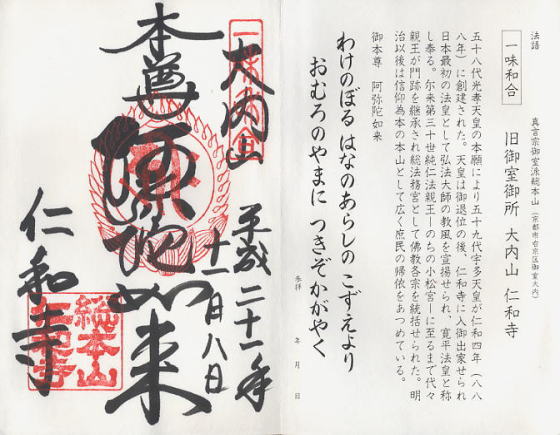 法語
一味和合
真言宗御室派総本山(京都市右京区御室大内)
旧御室御所 大内山 仁和寺
五十八代光孝天皇の本願により五十九代宇多天皇が仁和四年(八八
八年)に創建された。天皇は御退位の後、仁和寺に入御出家せられ
日本最初の法皇として弘法大師の教風を宣揚せられ、寛平法皇と称
し奉る。尓来第三十世純仁法親王―のちの小松宮―に至るまで代々
親王が門跡を継承され総法務宮として佛教各宗を統括せられた。明
治以後は信仰為本の本山として広く庶民の帰依をあつめている。
御本尊 阿弥陀如来
わけのぼる はなのあらしの こずえより
おむろのやまに つきぞかがやく
参拝 年 月 日
一味和合
大内山
本尊
阿弥陀如来
平成二十一年
十一月八日
仁和寺
総本山
仁和寺